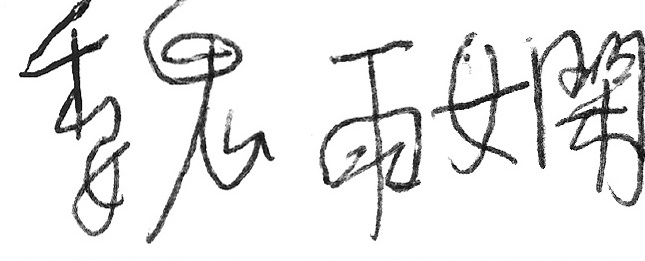 魏雨嫻